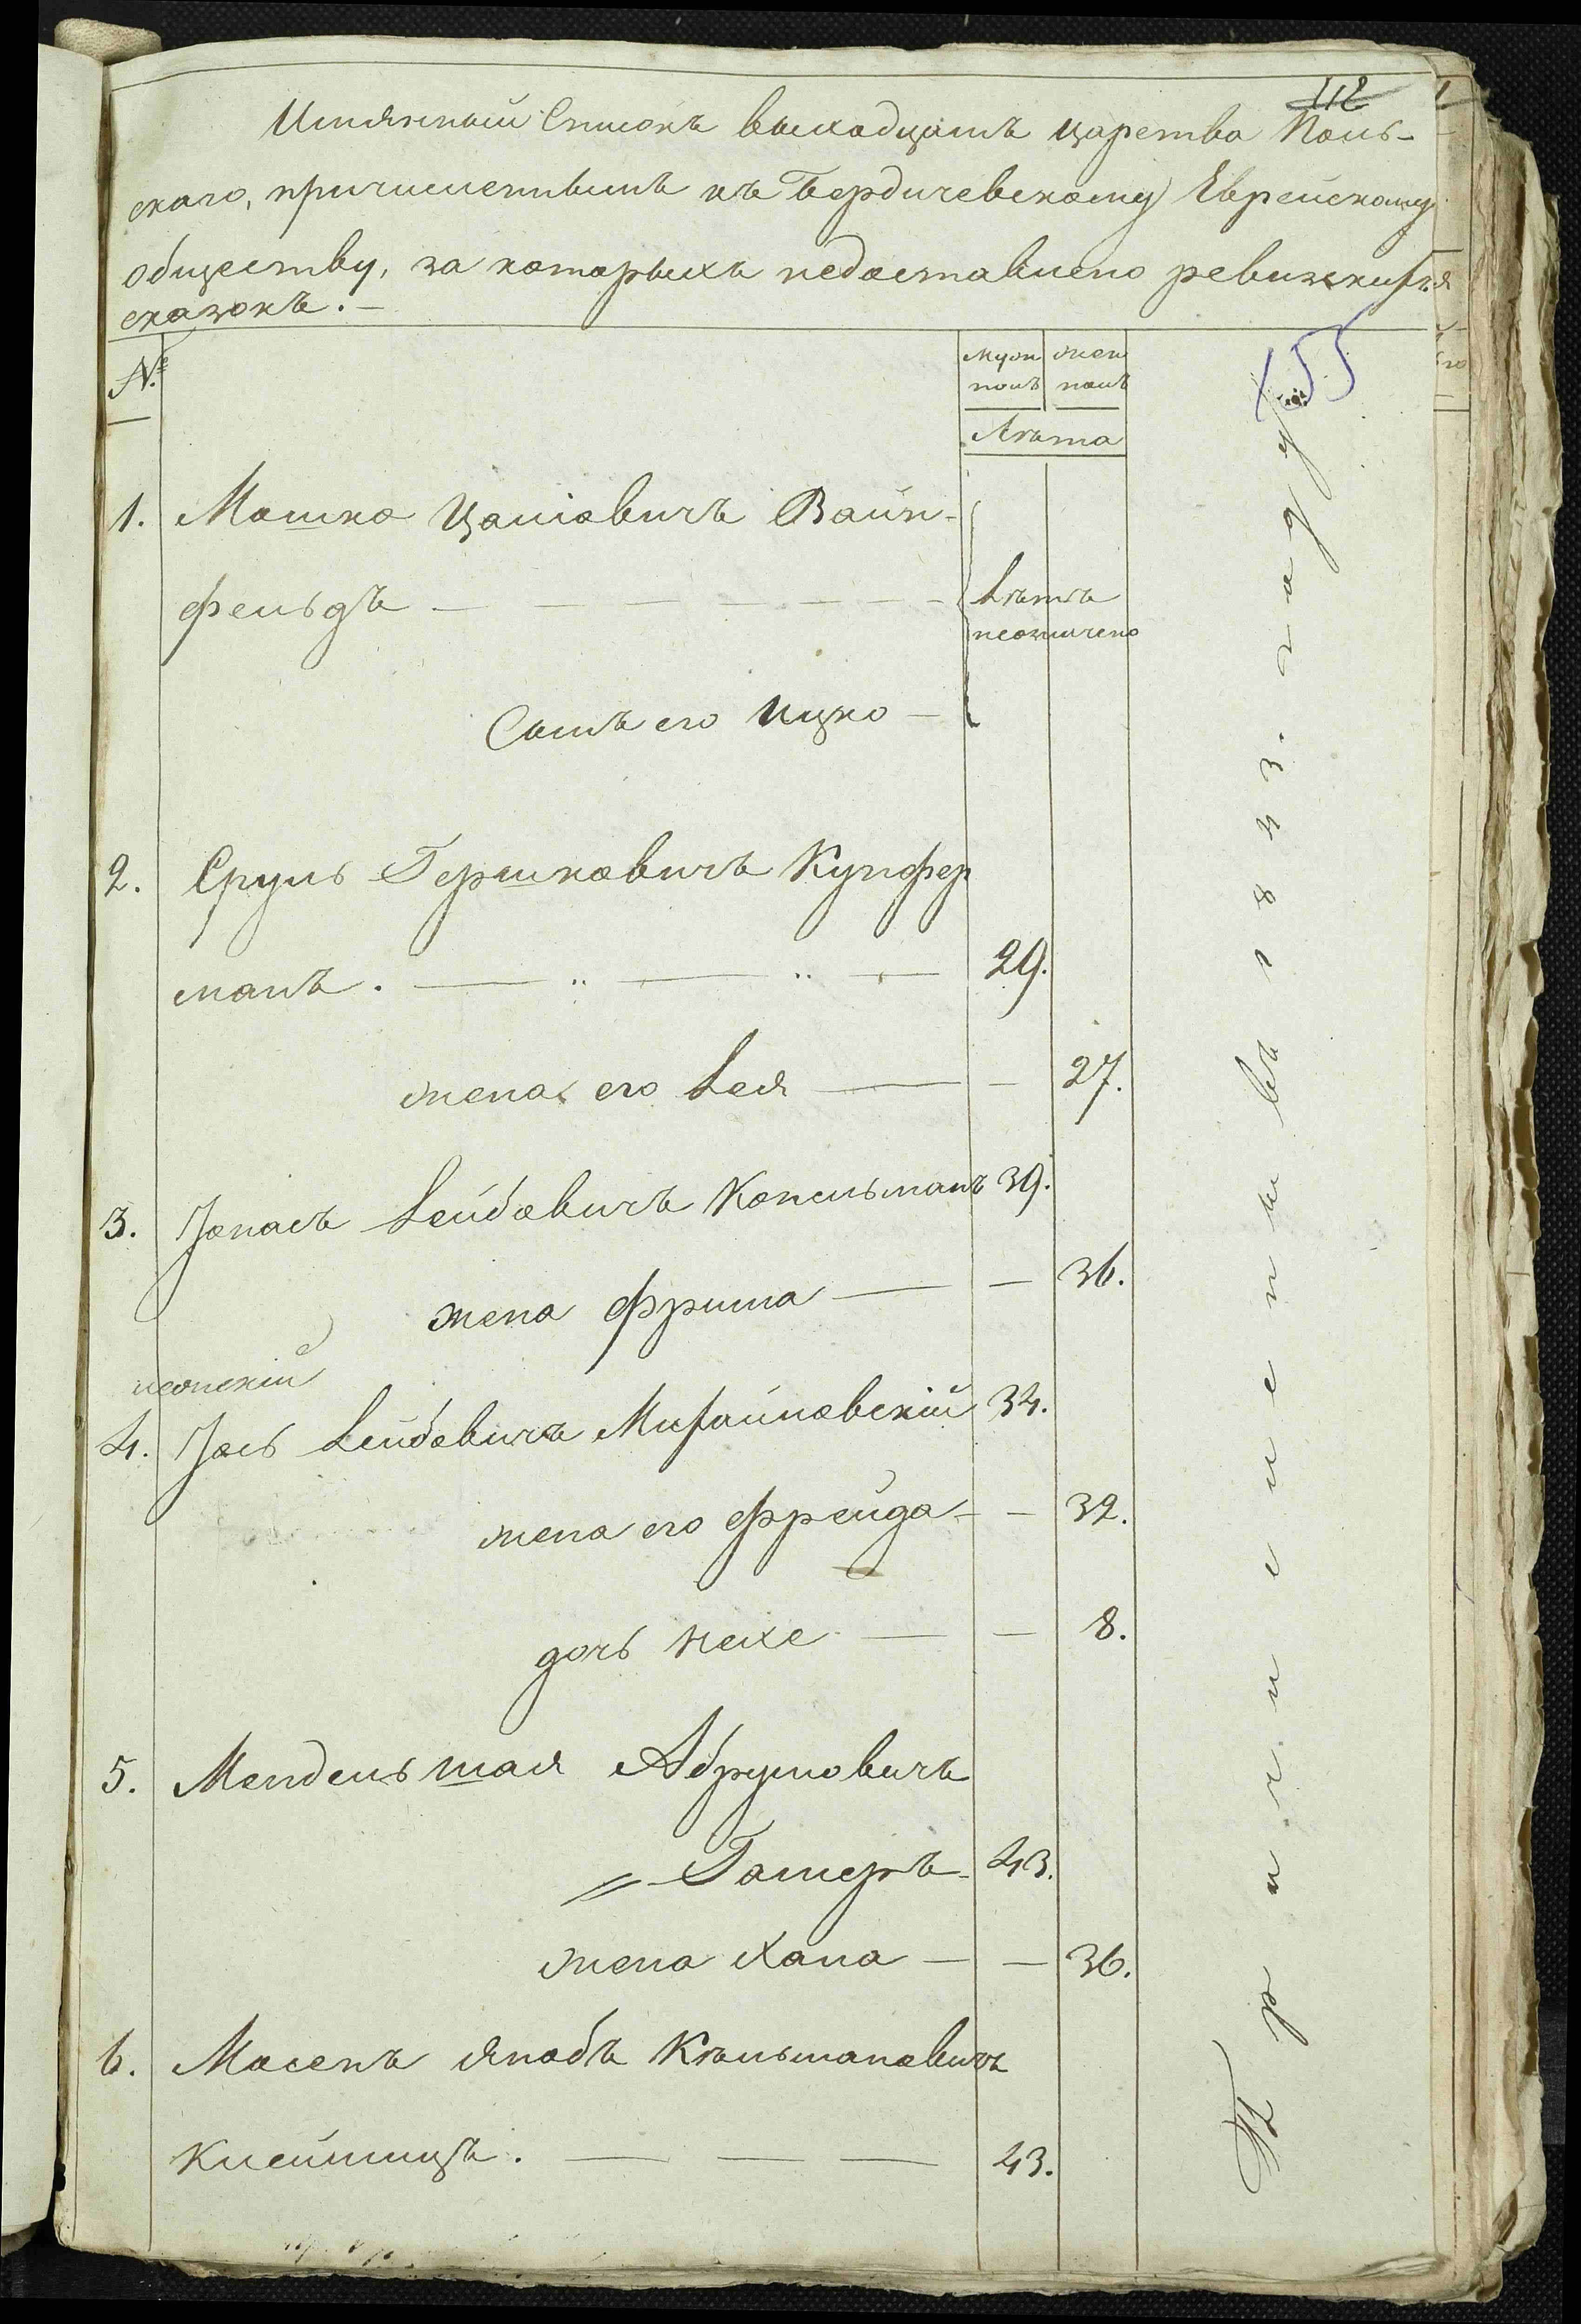 112
Имянный Списокъ выходцамъ царства Поль-
скаго, причисленнымъ къ Бердичевскому Еврейскому
обществу, за которыхъ недоставлено ревизскихъ
сказокъ. —
155
№ муж полъ жен полъ
Лѣта
1. Мошко Цаліовичъ Вайн-
фельдъ — Лѣтъ
неозначено
Сынъ его Ицко —
2. Сруль Гершковичъ Купфер
манъ. — 29.
жена его Лея — — 27.
3. Іонасъ Лейбовичъ Копельманъ 39.
жена Фрима — — 36.
4. Іось Лейбовичъ 34.
жена его Фрейда — — 32.
дочь Нехе — — 8.
5. Мендель Шая Абрумовичъ
Гамеръ — 43.
жена Хана — — 36.
6. Мосекъ Якобъ Кѣльмановичъ
43.
Причислены въ 1843. году